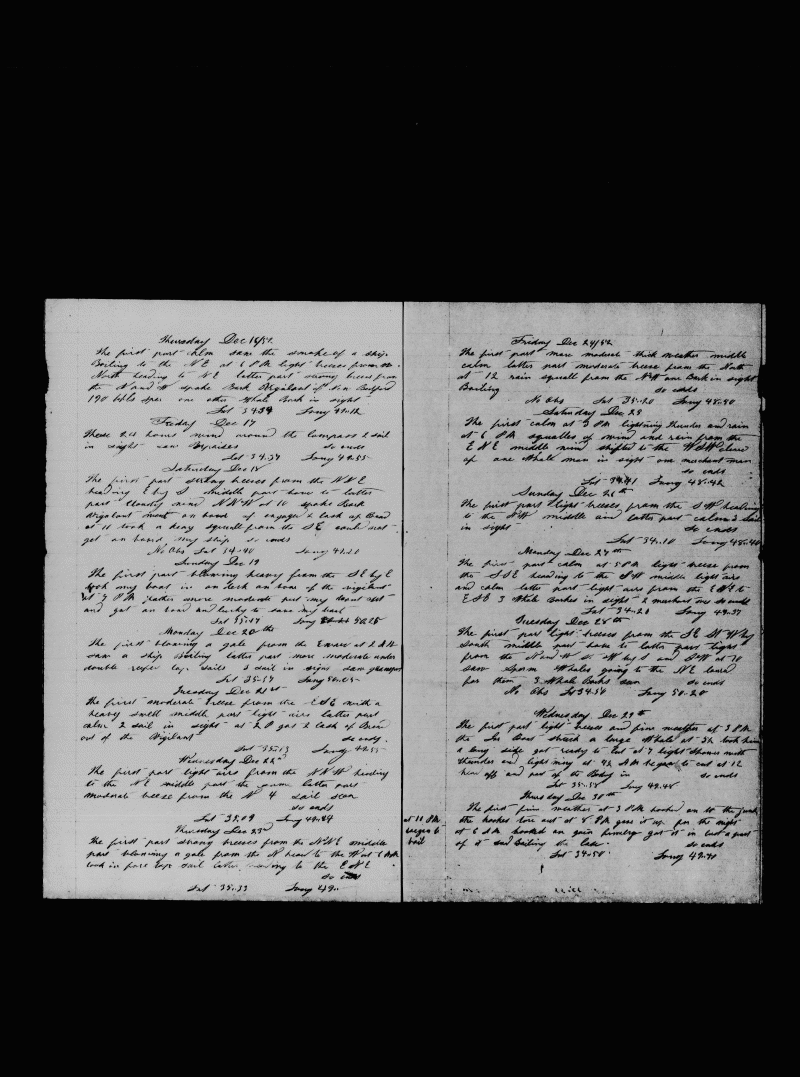 Thursday Dec 16/52
The first part calm saw the smoke of a ship
Boiling to the NE at 6 PM light breeses from the
North heading to NE latter part strong breeses from
the N and W spoke Bark Vigilant of New Bedford
190 bbls sper one other Whale Bark in sight
Lat 34.34 Long 49.12
Friday Dec 17
These 24 hours wind around the compass 2 sail
in sight so ends
Lat 34.37 Long 49.55
Saturday Dec 18
The first part strong breeses from the NNE
heading E by S middle part hove to latter
part Cloudy wind NNW at 10 spoke Bark
Vigilant went on board of
at 11 took a heavy squall from the SE could not
get on board my ship so ends
No Obs Lat 34.40 Long
Sunday Dec 19
The first part blowing heavy from the SE by E
took my boat in on Deck on bord of the vigilant
at 7 PM rather more moderate put my boat out
and got on bord and lucky to save my boat
Lat 35.17 Long
Monday Dec 20th
The first blowing a gale from the at 2 AM
saw a ship Boiling latter part more moderate under
double reefed top sails 3 sail in sight saw grampus
Lat 35.17 Long
Tuesday Dec 21st
The first moderate breese from the ESE with a
heavy swell middle part light airs latter part
calm 2 sail in sight at 2 P got 2 Cask of Bread
out of the Vigilant so ends
Lat 35.13 Long
Wednesday Dec 22d
The first part light airs from the NNW heading
to the NE middle part the same latter part
moderate breese from the N 4 sail seen
so ends
Lat 35.09 Long 49.44
Thursday Dec 23d
The first part strong breeses from the NNE middle
part blowing a gale from the N head to the W at 6 AM
took in fore top sail latter heading to the ENE
so ends
Lat 35.33 Long 49
Friday Dec 24/52
The first part more moderate thick weather middle
calm latter part moderate breese from the North
at 12 rain squall from the NW one Bark in sight
Boiling so ends
No Obs Lat 35.20 Long 48.50
Saturday Dec 25
The first calm at 3 PM lightning thunder and rain
at 6 PM squalls of wind and rain from the
ENE middle wind shifted to the WSW cleared
up one Whale man in sight one merchant man
so ends
Lat 34.41 Long 48.42
Sunday Dec 26th
The first part light breeses from the SW heading
to the NW middle and latter part calm 2 sail
in sight so ends
Lat 34.10 Long 48.40
Monday Dec 27th
The first part calm at 5 PM light breese from
the SSE heading to the SW middle light airs
and calm latter part light airs from the ENE to
ESE 3 Whale Barks in sight 2 merchant so ends
Lat 34.21 Long 49.37
Tuesday Dec 28th
The first part light breeses from the SE St W by
South middle part hove to latter part light
from the N and W St W by S and SW at 10
saw sperm Whales going to the NE lowrd
for them 3 Whale Barks seen so ends
No Obs Lat 34.54 Long 50.20
Wednesday Dec 29th
The first part light breeses and fine weather at 3 PM
the Boat struck a large Whale at 5½ took him
a long side got ready to Cut at 7 light showers with
thunder and lightning at 4½ AM began to cut at 12
head off and part of the Body in so ends
Lat 35.58 Long 49.48
Thursday Dec 30th
at 11 PM
began to
boil
The first fine weather at 3 PM hooked on to the junk
the hookes tore out at 8 PM gave it up for the night
at 6 AM hooked on gain finaly got it in lost a part
of it and Boiling the Case so ends
Lat 34.58 Long 49.40